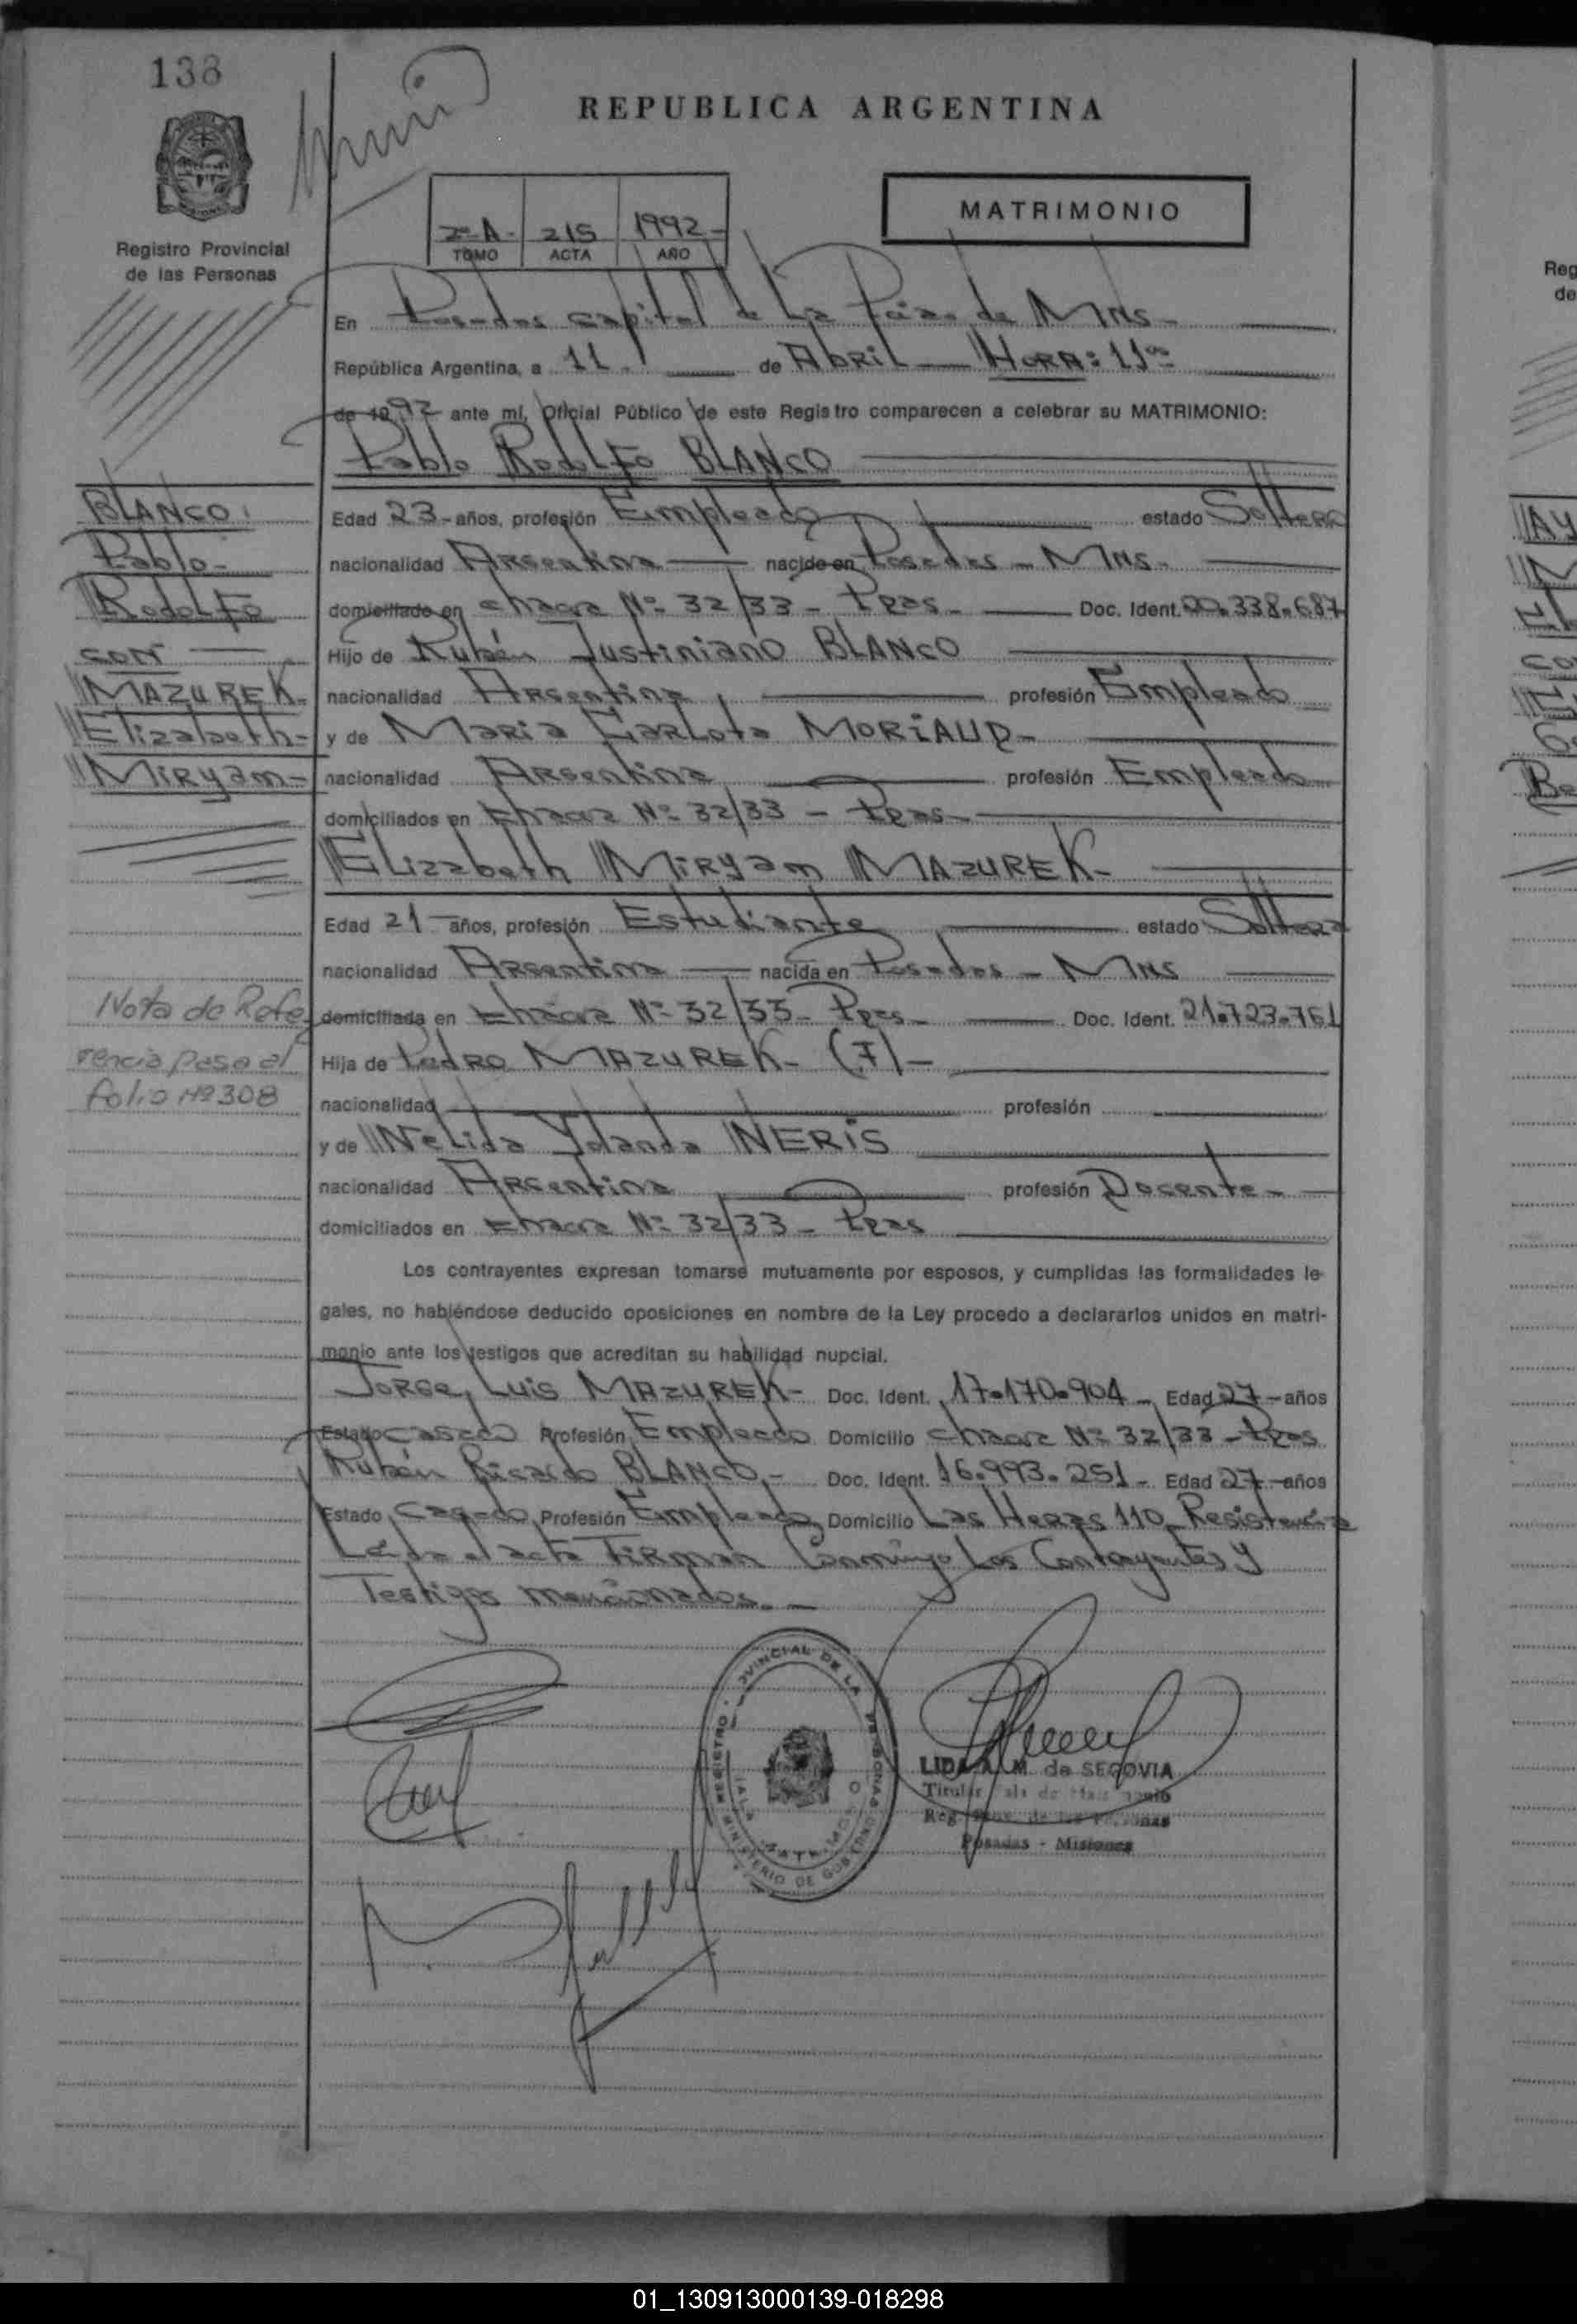 138
REPUBLICA ARGENTINA
Registro Provincial
de las Personas
2º A - 215 1992 -
TOMO ACTA AÑO
MATRIMONIO
En Posadas capital de La Pcia. de Mnes -
República Argentina, a 11 de Abril HORA: 11
de 1992 ante mí, Oficial Público de este Registro comparecen a celebrar su MATRIMONIO:
Pablo Rodolfo BLANCO
BLANCO
Pablo -
Rodolfo
con
MAZUREK -
Elizabeth -
Miryam -
Edad 23 - años, profesión Empleado estado Soltero
nacionalidad Argentina nacido en Posadas - Mnes -
domiciliado en chacra Nº 32/33 - Pdas - Doc. Ident. 20.338.687
Hijo de Rubén Justiniano BLANCO
nacionalidad Argentina profesión Empleado
y de Maria Carlota MORIAUD -
nacionalidad Argentina profesión Empleada
domiciliados en chacra Nº 32/33 - Pdas -
Elizabeth Miryam MAZUREK -
Edad 21 - años, profesión Estudiante estado Soltera
nacionalidad Argentina nacida en Posadas - Mnes
domiciliada en chacra Nº 32/33 - Pdas - Doc. Ident. 21.723.761
Hija de Pedro MAZUREK - (F) -
nacionalidad profesión
y de Nelida Yolanda NERIS
nacionalidad Argentina profesión Docente -
domiciliados en chacra Nº 32/33 - Pdas
Nota de Refe
rencia pasa al
folio Nº 308
Los contrayentes expresan tomarse mutuamente por esposos, y cumplidas las formalidades le-
gales, no habiéndose deducido oposiciones en nombre de la Ley procedo a declararlos unidos en matri-
monio ante los testigos que acreditan su habilidad nupcial.
Jorge Luis MAZUREK - Doc. Ident. 17.170.904 - Edad 27 - años
Estado casado Profesión Empleado Domicilio chacra Nº 32/33 - Pdas
Rubén Ricardo BLANCO - Doc. Ident. 16.993.251 - Edad 27 - años
Estado Casado Profesión Empleado Domicilio Las Heras 110 Resistencia
Leída el acta Firman Conmigo Los Contrayentes y
Testigos mencionados. -
REGISTRO PROVINCIAL DE LAS PERSONAS
MINISTERIO DE GOBIERNO
LIDA A. M. de SEGOVIA
Titular
Reg. Prov. de las Personas
Posadas - Misiones
Reg
de
01_130913000139-018298